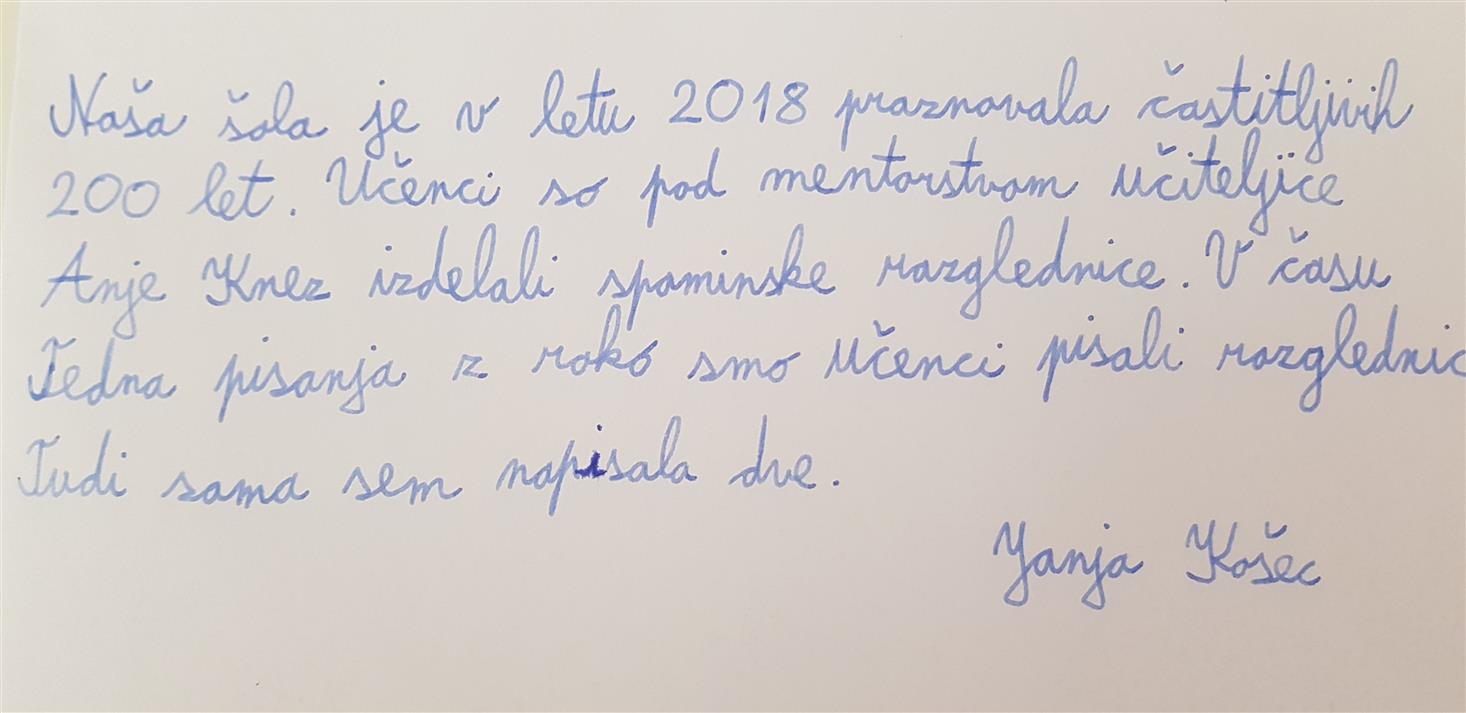 Naša šola je v letu 2018 praznovala častitljivih
200 let. Učenci so pod mentorstvom učiteljice
Anje Knez izdelali spominske razglednice. V času
Tedna pisanja z roko smo učenci pisali razglednic
Tudi sama sem napisala dve.
Yanja Košec